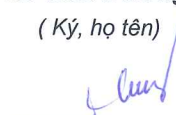 ( Ký, họ tên)